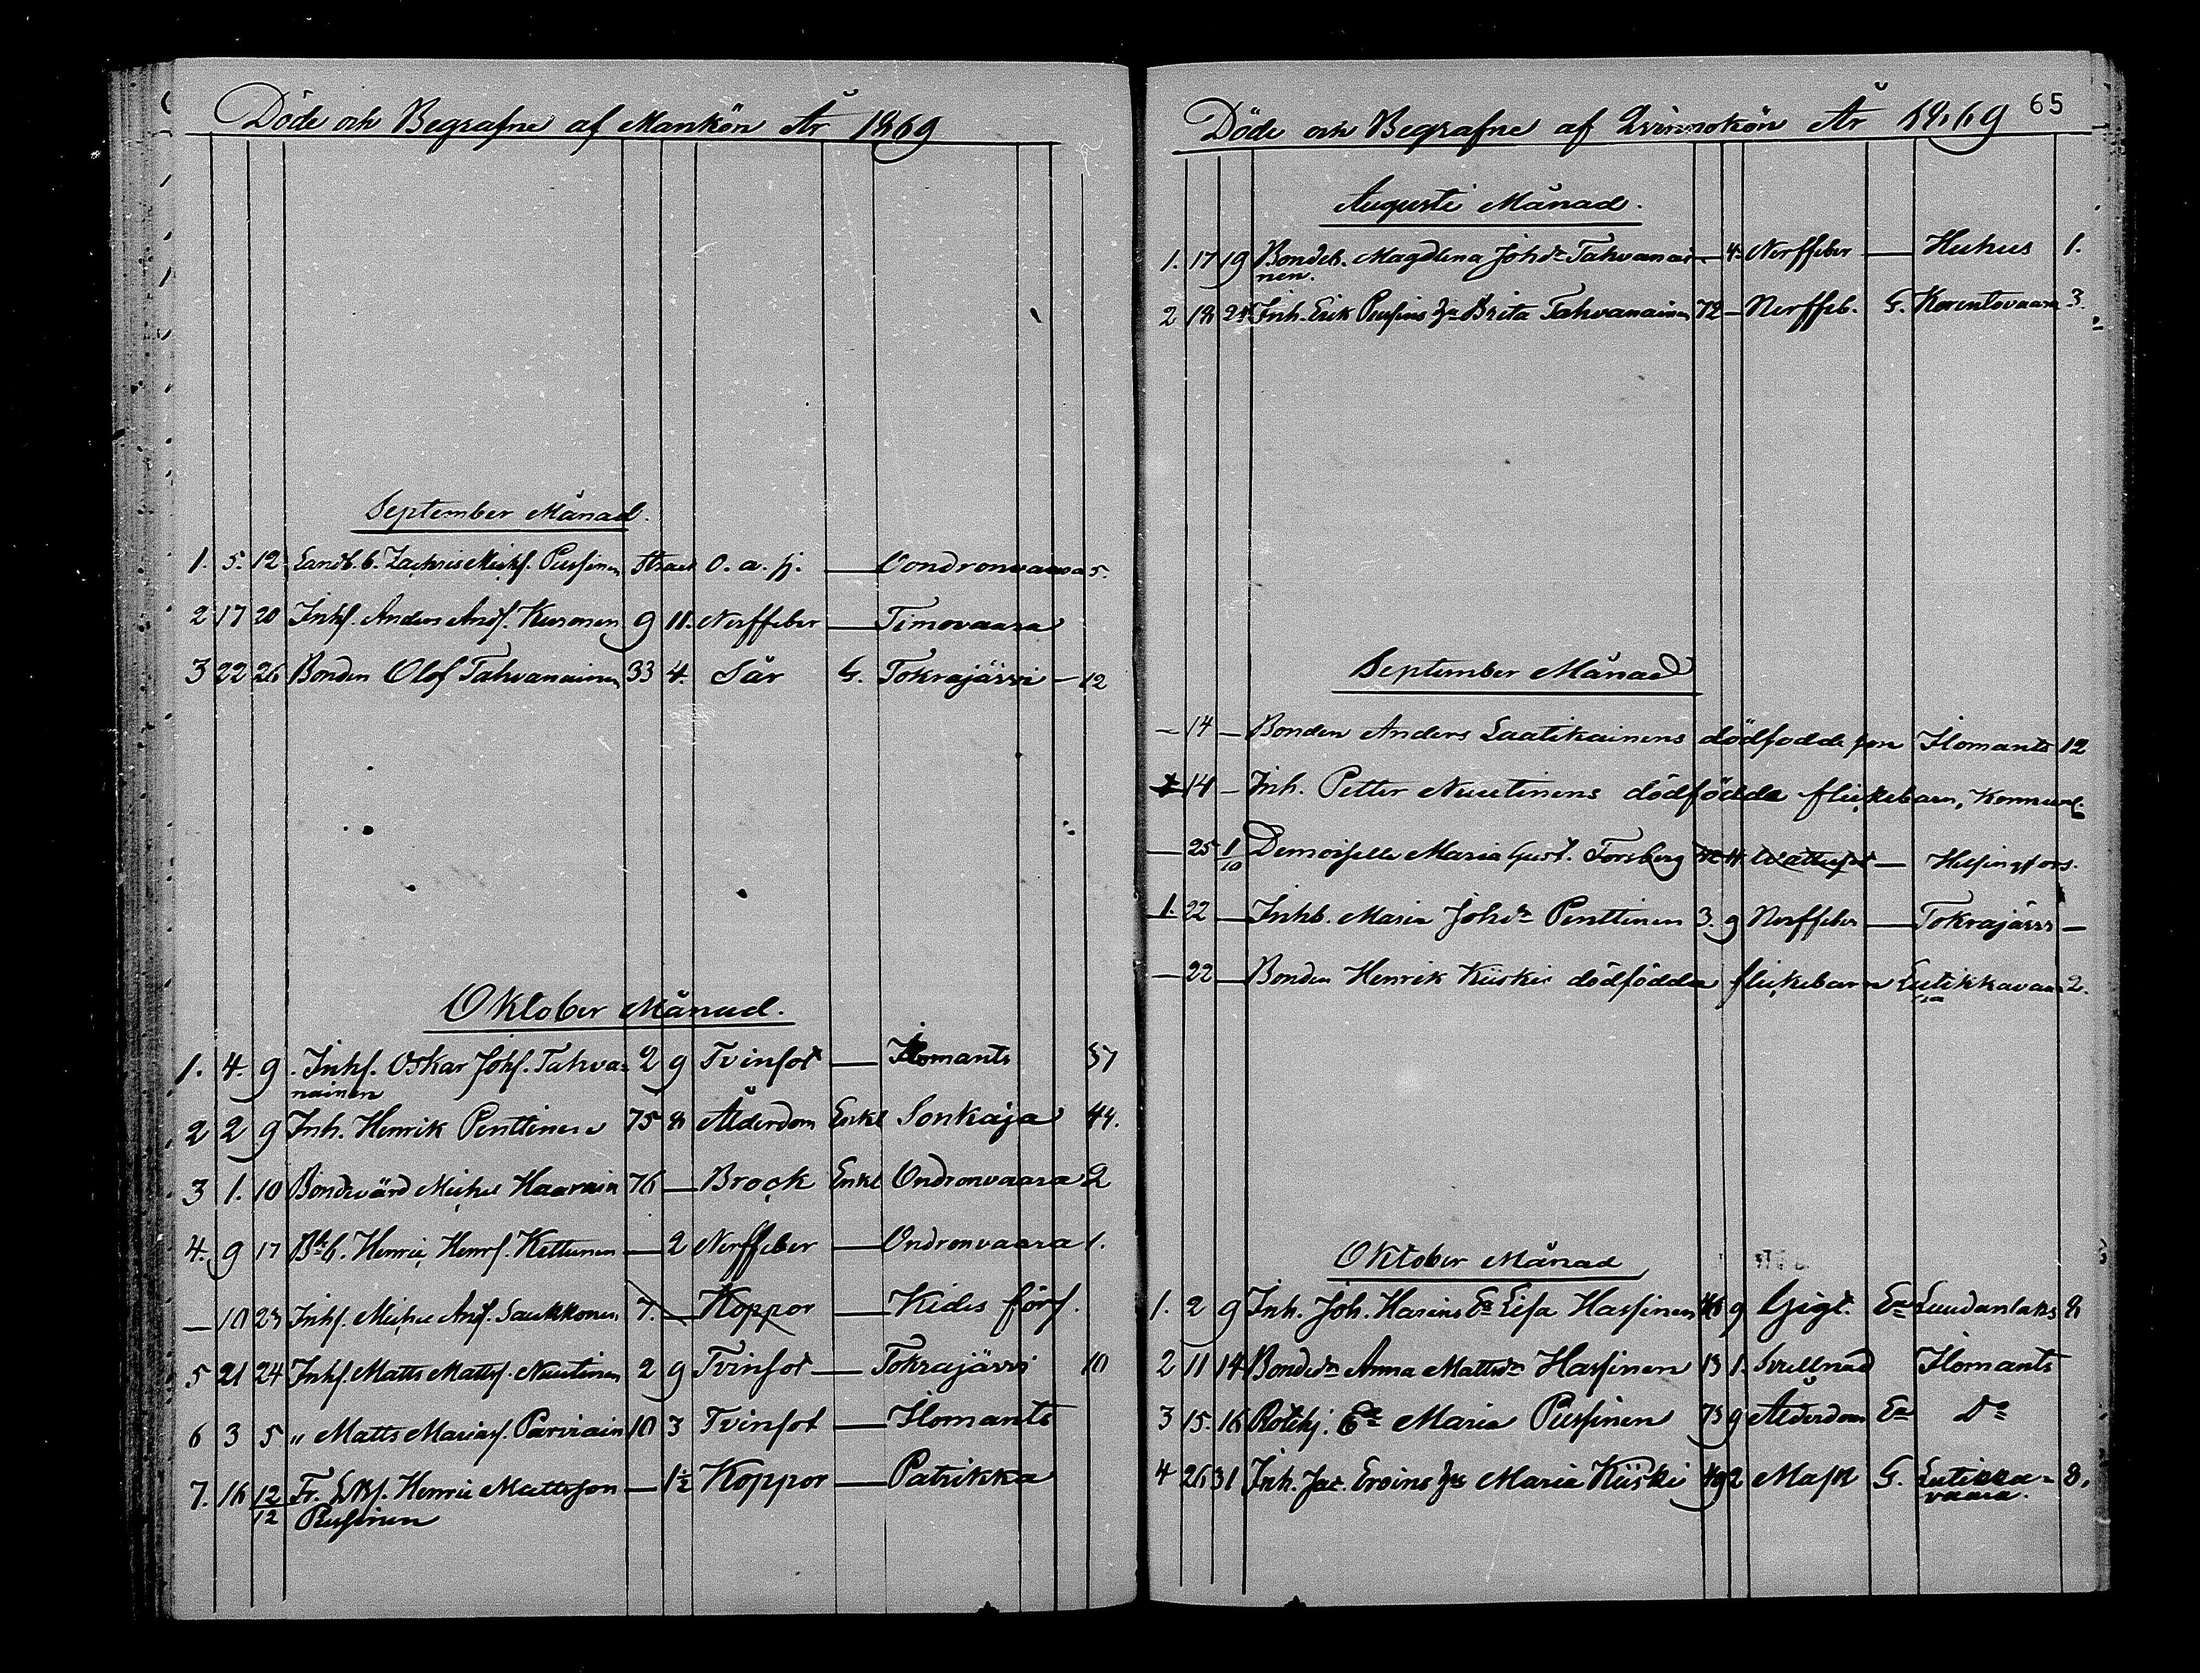 Döde och Begrafne af Mankön År 1869
September Månad.
1. 5. 12 Landb. b. Zachris Michs. Piussinen straxt o. a. s. — Ondronvaara 5.
2 17 20 Inhs. Anders Ands. Kuronen 9 11. Nerffeber — Timovaara
3 22 26 Bonden Olof Tahvanainen 33 4. Sår G. Tokrajärvi — 12
Oktober Månad.
1. 4. 9. Inhs. Oskar Johs. Tahva- 2 9 Tvinsot — Ilomants 57
nainen
2 2 9 Inh. Henrik Penttinen 75 8 Ålderdom Enkl Sonkaja 44.
3 1. 10 Bondevärd Michel Haaranin 76 — Brock Enkl Ondronvaara 2
4. 9 17 Bde b. Henric Henrs. Kettunen — 2 Nerffeber — Ondronvaara 1.
— 10 23 Inhs. Michel Ands. Saukkonen 7. — Koppor — Kides förs.
5 21 24 Inhs. Matts Matts. Nuutinen 2 9 Tvinsot — Tokrajärvi 10
6 3 5 „ Matts Marias. Parviain 10 3 Tvinsot — Ilomants
7. 16 12/12 Fr. Henric Mattsson — 1½ Koppor — Patrikka
Piussinen
65
Döde och Begrafne af Qvinnokön År 1869
Augusti Månad.
1. 17 19 Bondeb. Magdlena Johdr Tahvanai- — 4 Nerffeber — Huhus 1.
nen.
2 18 24 Inh. Erik Piussins Brita Tahvanainen 72 — Nerffeb. G. Korentovaara 3.
September Månad
— 14 — Bonden Anders Laatikainens dödfödde son Ilomants 12
— 14 — Inh. Petter Nuutinens dödfödda flickebarn,
— 25 1/10 Demoiselle Maria Gust. Forsberg 4 Wattusot — Helsingfors.
1. 22 — Inhb. Maria Johdr Penttinen 3. 9 Nerffeber — Tokrajärvi —
— 22 — Bonden Henrik Kiiskis dödfödda flickebarn Lutikkavaara 2.
Oktober Månad
1. 2 9 Inh. Joh. Harins Ea Lisa Hassinen 46 9 Gigt. Ea Luudanlaks 8
2 11 14 Bondedr Anna Mattsdr Hassinen 13 1. Svullnad Ilomants
3 15. 16 Rotehj. Ea Maria Piussinen 73 9 Ålderdom Ea Do
4 26 31 Inh. Jac. Ervins Maria Kiiski 49 2 G. Lutikka- 8.
vaara.